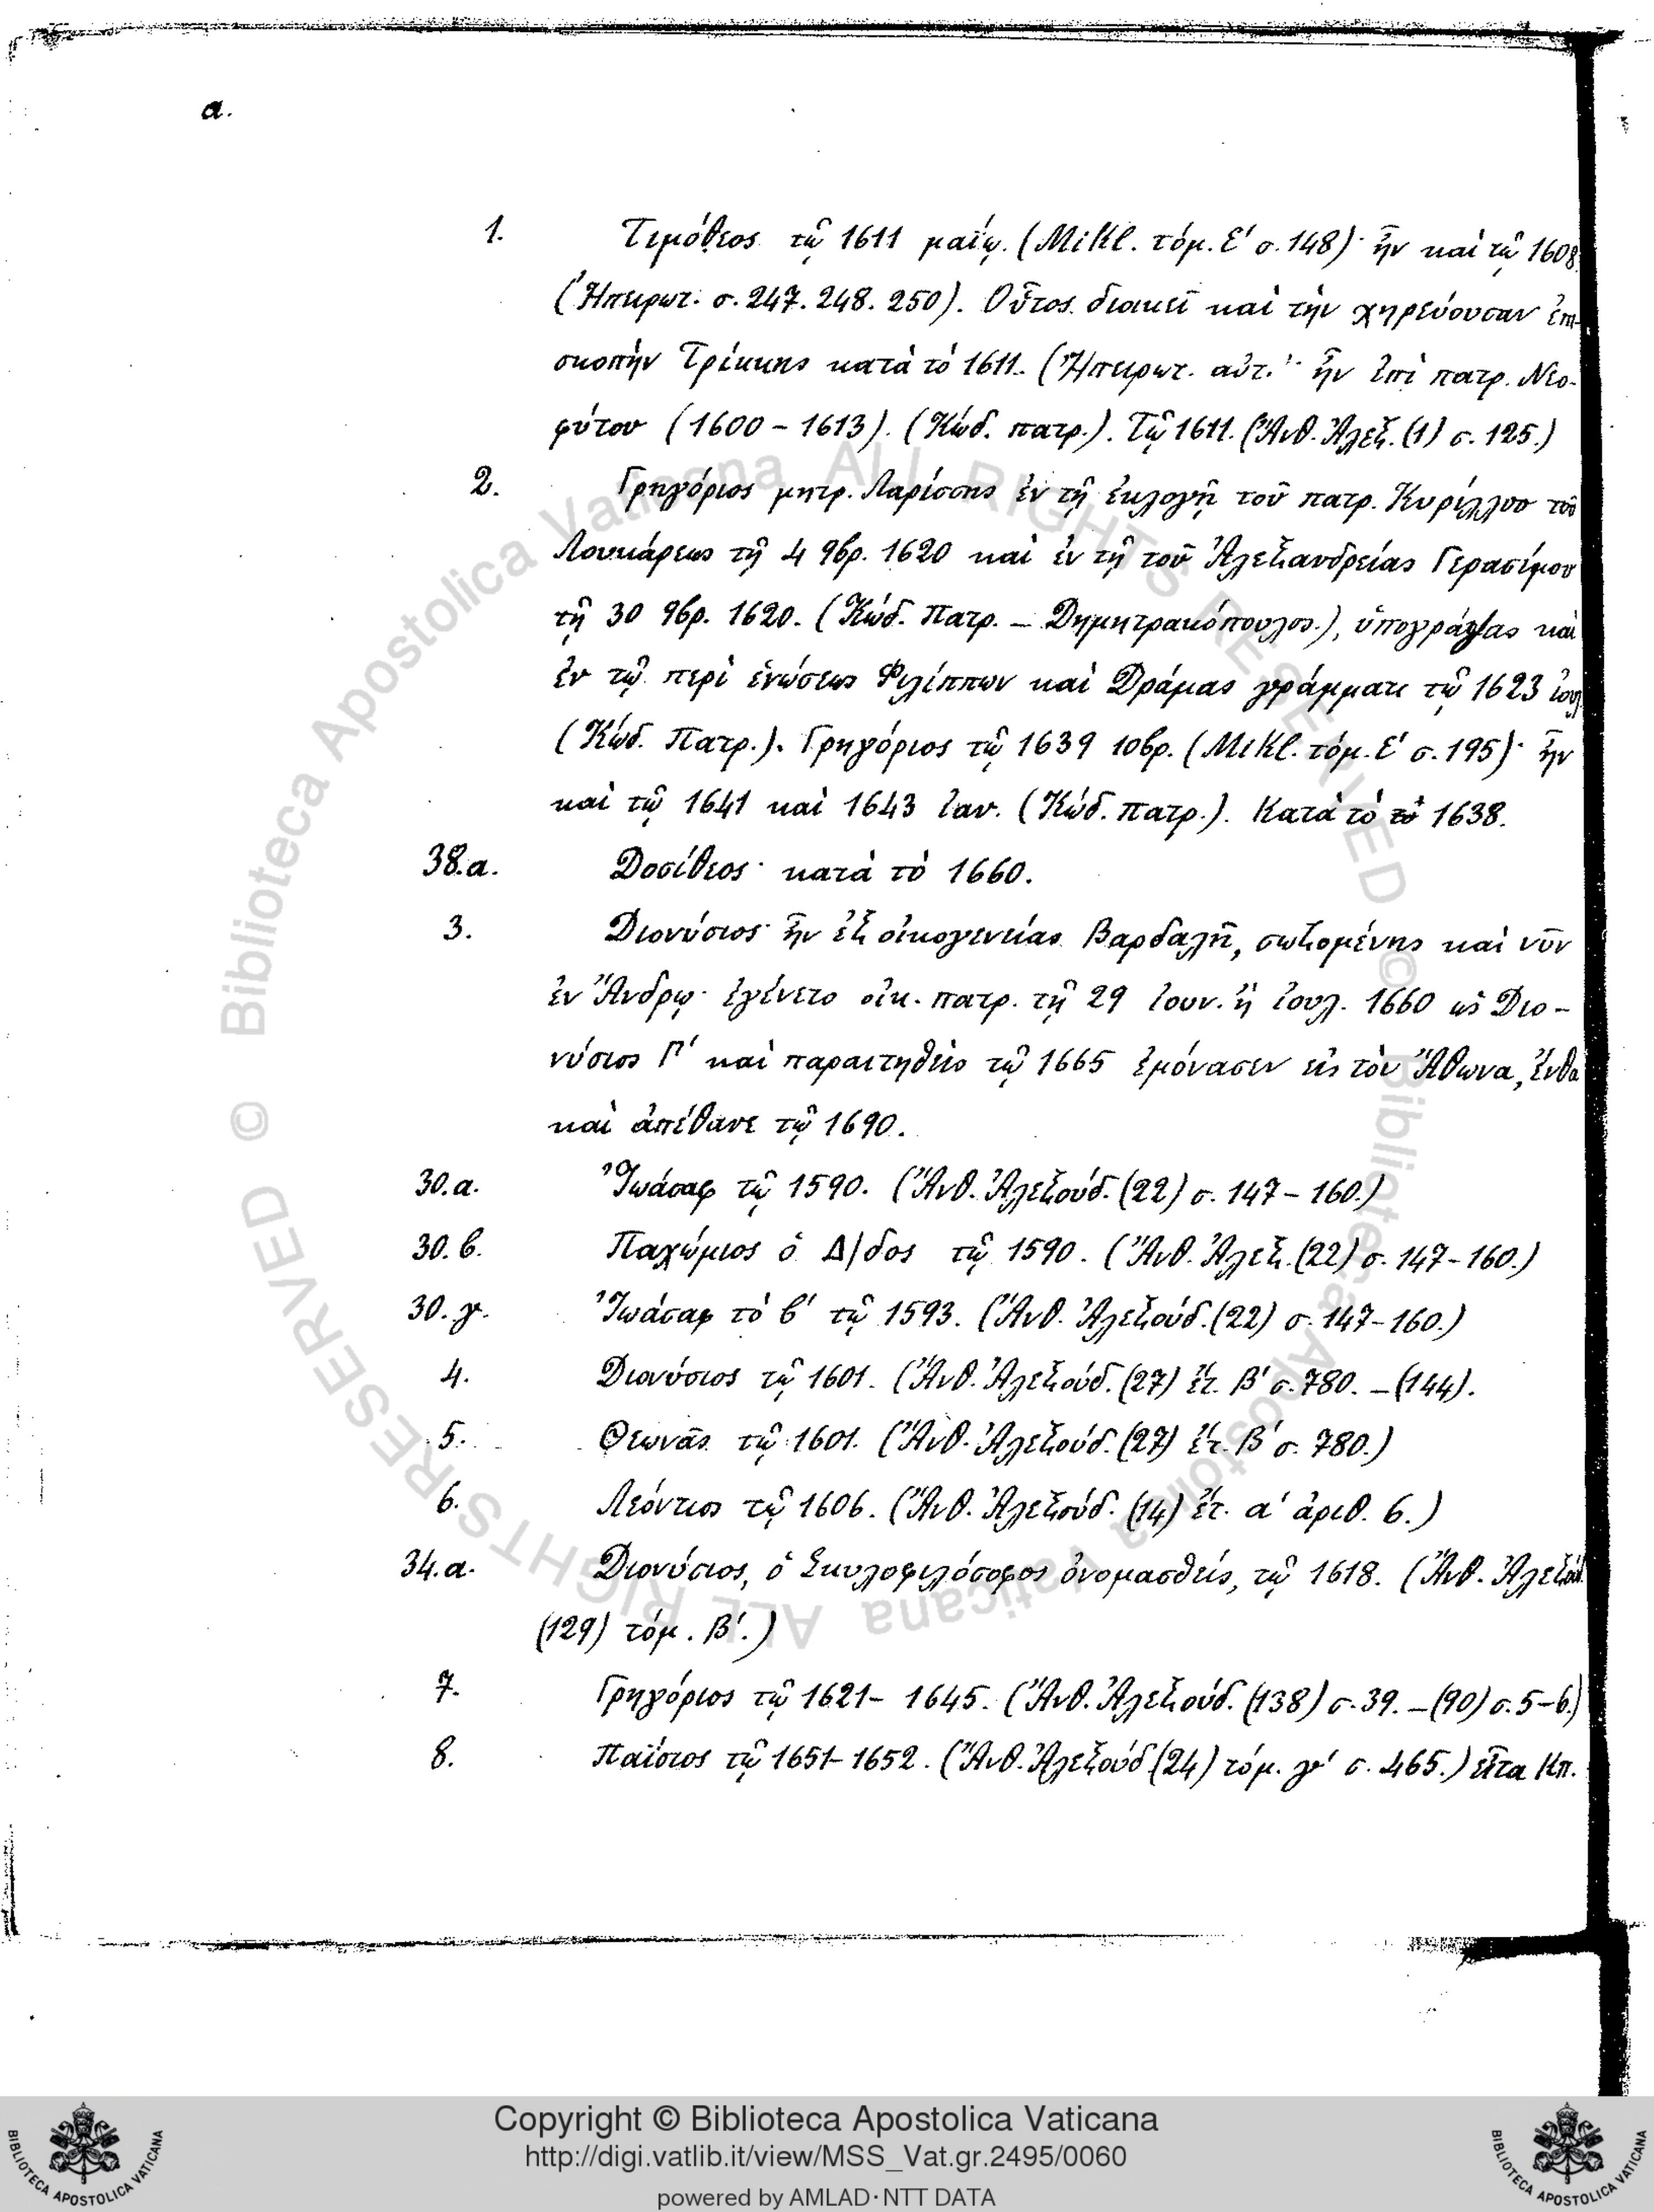 α.
1. Τιμόθεος τῷ 1611 μαΐῳ. (Mikl. τόμ. Ε′ σ. 148)· ἦν καὶ τῷ 1608
(Ἠπειρωτ. σ. 247. 248. 250). Οὗτος διοικεῖ καὶ τὴν χηρεύουσαν ἐπι-
σκοπὴν Τρίκκης κατὰ τὸ 1611. (Ἠπειρωτ. αὐτ.· ἦν ἐπὶ πατρ. Νεο-
φύτου (1600 – 1613). (Κώδ. πατρ.). Τῷ 1611. (Ἄνθ. Ἀλεξ. (1) σ. 125.)
2. Γρηγόριος μητρ. Λαρίσσης ἐν τῇ ἐκλογῇ τοῦ πατρ. Κυρίλλου τοῦ
Λουκάρεως τῇ 4 9βρ. 1620 καὶ ἐν τῇ τοῦ Ἀλεξανδρείας Γερασίμου
τῇ 30 9βρ. 1620. (Κώδ. Πατρ. – Δημητρακόπουλος.), ὑπογράψας καὶ
ἐν τῷ περὶ ἑνώσεως Φιλίππων καὶ Δράμας γράμματι τῷ 1623 ἰουλ
(Κώδ. Πατρ.). Γρηγόριος τῷ 1639 10βρ. (Mikl. τόμ. Ε′ σ. 195)· ἦν
καὶ τῷ 1641 καὶ 1643 ἰαν. (Κώδ. πατρ.). Κατὰ τὸ τὸ 1638.
38.α. Δοσίθεος· κατὰ τὸ 1660.
3. Διονύσιος· ἦν ἐξ οἰκογενείας Βαρδαλῆ, σωζομένης καὶ νῦν
ἐν Ἄνδρῳ· ἐγένετο οἰκ. πατρ. τῇ 29 ἰουν. ἢ ἰουλ. 1660 ὡς Διο-
νύσιος Γ′ καὶ παραιτηθεὶς τῷ 1665 ἐμόνασεν εἰς τὸν Ἄθωνα, ἔνθα
καὶ ἀπέθανε τῷ 1690.
30.α. Ἰωάσαφ τῷ 1590. (Ἄνθ. Ἀλεξούδ. (22) σ. 147 – 160.)
30.β. Παχώμιος ὁ Δ/δος τῷ 1590. (Ἄνθ. Ἀλεξ. (22) σ. 147-160.)
30.γ. Ἰωάσαφ τὸ β′ τῷ 1593. (Ἄνθ. Ἀλεξούδ. (22) σ. 147-160.)
4. Διονύσιος τῷ 1601. (Ἄνθ. Ἀλεξούδ. (27) ἔτ. Β′ σ. 780. – (144).
5. Θεωνᾶς τῷ 1601. (Ἄνθ. Ἀλεξούδ. (27) ἔτ. Β′ σ. 780.)
6. Λεόντιος τῷ 1606. (Ἄνθ. Ἀλεξούδ. (14) ἔτ. α′ ἀριθ. 6.)
34.α. Διονύσιος, ὁ Σκυλοφιλόσοφος ὀνομασθείς, τῷ 1618. (Ἄνθ. Ἀλεξούδ.
(129) τόμ. Β′.)
7. Γρηγόριος τῷ 1621 – 1645. (Ἄνθ. Ἀλεξούδ. (138) σ. 39. – (90) σ. 5-6.)
8. Παΐσιος τῷ 1651-1652. (Ἄνθ. Ἀλεξούδ. (24) τόμ. γ′ σ. 465.) εἶτα Κπ.
© Biblioteca Apostolica Vaticana ALL RIGHTS RESERVED © Biblioteca Apostolica Vaticana ALL RIGHTS RESERVED
BIBLIOTECA APOSTOLICA VATICANA
Copyright © Biblioteca Apostolica Vaticana
http://digi.vatlib.it/view/MSS_Vat.gr.2495/0060
powered by AMLAD·NTT DATA
BIBLIOTECA APOSTOLICA VATICANA